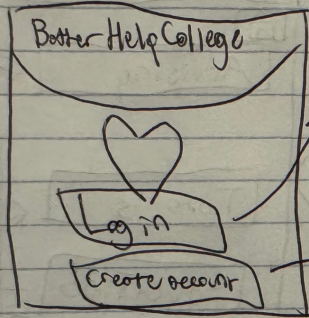 Better Help College
Log in
Create account